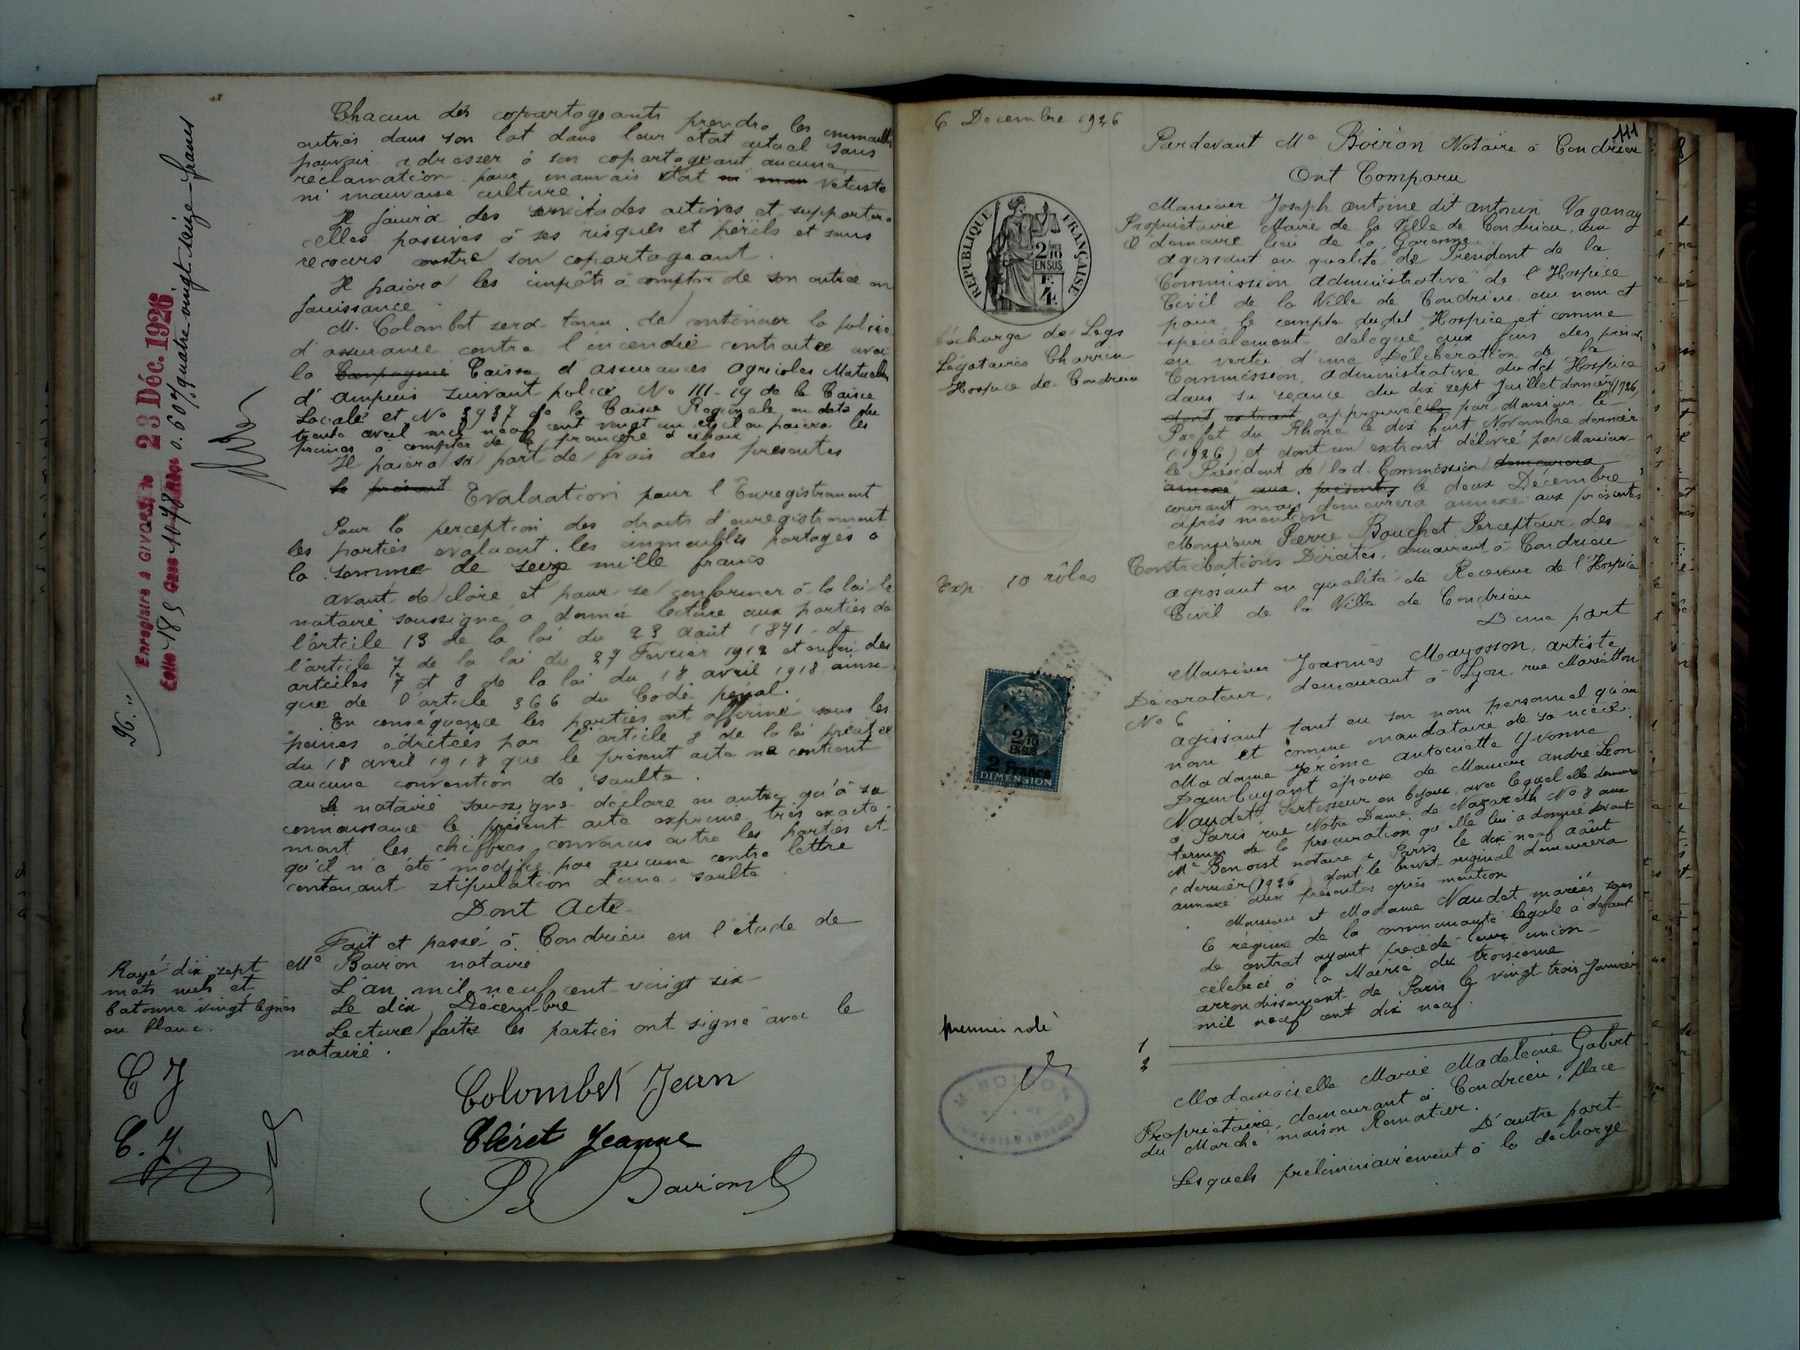 Chacun des copartageants prendra les immeubles
entrés dans son lot dans leur état actuel sans
pouvoir adresser à son copartageant aucune
réclamation pour mauvais état ni mau vétusté
ni mauvaise culture.
Il jouira des servitudes actives et supportera
celles passives à ses risques et périls et sans
recours contre son copartageant.
Il paiera les impôts à compter de son entrée en
jouissance.
M. Colombet sera tenu de continuer la police
d'assurance contre l'incendie contractée avec
la Campagnie Caisse d'assurances agricoles Mutuelles
d'ampuis suivant police No 111-19 de la Caisse
Locale et No 3937 de la Caisse Régionale en date du
trente avril mil neuf cent vingt un et il en paiera les
primes à compter de la première à échoir
Il paiera sa part de frais des présentes
le présent Evaluation pour l'Enregistrement
Pour la perception des droits d'enregistrement
les parties évaluent les immeubles partagés à
la somme de seize mille francs
avant de clore et pour se conformer à la loi le
notaire soussigné a donné lecture aux parties de
l'article 13 de la loi du 23 août 1871 de
l'article 7 de la loi du 27 Février 1912 et enfin des
articles 7 et 8 de la loi du 18 avril 1918 ainsi
que de l'article 366 du Code pénal.
En conséquence les parties ont affirmé sous les
peines édictées par l'article 8 de la loi précitée
du 18 avril 1918 que le présent acte ne contient
aucune convention de soulte.
Le notaire soussigné déclare en outre qu'à sa
connaissance le présent acte exprime très exacte-
ment les chiffres convenus entre les parties et
qu'il n'a été modifié par aucune contre lettre
contenant stipulation d'une soulte
Dont Acte
Fait et passé à Condrieu en l'étude de
Me Boiron notaire
L'an mil neuf cent vingt six
Le dix Décembre
Lecture faite les parties ont signé avec le
notaire.
Colombet Jean
Cléret Jeanne
Boiron
Enregistré à GIVORS, le 23 Déc. 1926
Folio 18 Case 107
quatre vingt seize francs
Rayé dix sept
mots nuls et
batonné vingt lignes
en blanc.
C J
C. J.
6 Décembre 1926
111
REPUBLIQUE FRANÇAISE
2/10
EN SUS
4
Décharge de Legs
Légataires Charrin
Hospice de Condrieu
Exp. 10 rôles
2/10
EN SUS
2 Francs
DIMENSION
premier rôle
Pardevant Me Boiron Notaire à Condrieu
Ont Comparu
Monsieur Joseph Antoine dit antonin Vaganay
Propriétaire Maire de la Ville de Condrieu, au
y demeure lieu de la Garenne
agissant en qualité de Président de la
Commission administrative de l'Hospice
Civil de la Ville de Condrieu au nom et
pour le compte dudit Hospice et comme
spécialement délégué aux fins des présentes
en vertu d'une Délibération de la
Commission administrative dudit Hospice
dans sa séance du dix sept Juillet dernier (1926)
dont extrait approuvée par Monsieur le
Préfet du Rhône le dix huit Novembre dernier
(1926) et dont un extrait délivré par Monsieur
le Président de lad. Commission demeurera
annexé aux présentes le deux Décembre
courant mois demeurera annexé aux présentes
après mention
Monsieur Pierre Bouchet Percepteur des
Contributions Directes, demeurant à Condrieu
agissant en qualité de Receveur de l'Hospice
Civil de la Ville de Condrieu
D'une part
Monsieur Joannès Mayosson, artiste
Décorateur, demeurant à Lyon, rue Mariétton
No 6
agissant tant en son nom personnel qu'au
nom et comme mandataire de sa nièce,
Madame Jérôme Antoinette Yvonne
Dambuyant épouse de Monsieur André Léon
Naudet Sertisseur en bijoux avec lequel elle demeure
à Paris rue Notre Dame de Nazareth No 8 aux
termes de la procuration qu'elle lui a donnée devant
Me Benoist notaire à Paris le dix neuf août
dernier (1926) dont le brevet original demeurera
annexé aux présentes après mention
Monsieur et Madame Naudet mariés sous
le régime de la communauté légale à défaut
de contrat ayant précédé leur union
célébrée à la Mairie du troisième
arrondissement de Paris le vingt trois Janvier
mil neuf cent dix neuf.
1
2
Mademoiselle Marie Madeleine Gabert
Propriétaire, demeurant à Condrieu, place
du Marché maison Remotier.
D'autre part
Lesquels préliminairement à la décharge